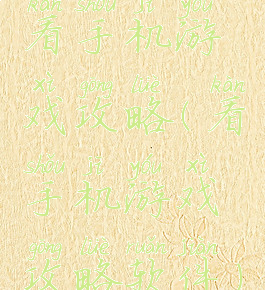 kàn shǒu jī yóu
看手机游
xì gōng lüè kàn
戏攻略(看
shǒu jī yóu xì
手机游戏
gōng lüè ruǎn jiàn
攻略软件)